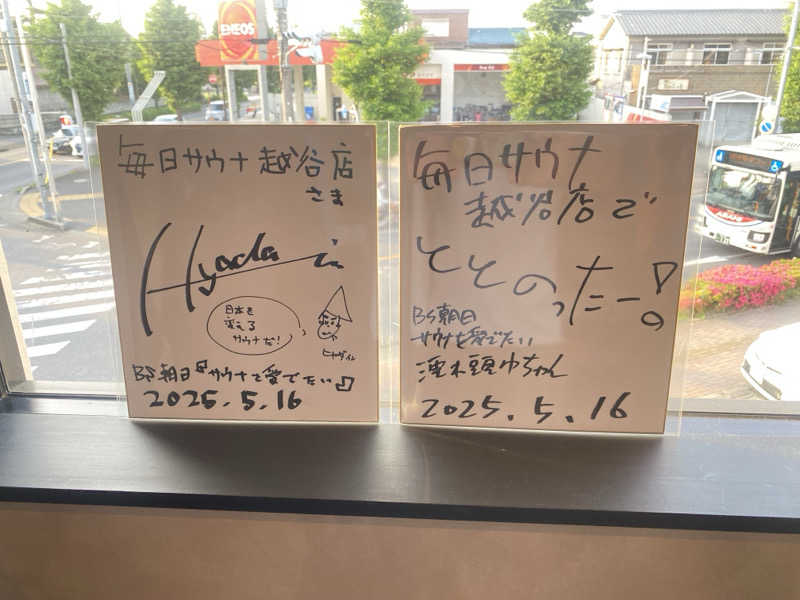 ENEOS
毎日サウナ 越谷店
さま
Hyada in
日本を
変える
サウナだ!
ヒャダイン
BS朝日『サウナを愛でたい』
2025.5.16
毎日サウナ
越谷店で
ととのったー!
BS朝日
サウナを愛でたい
濡れ頭巾ちゃん
2025.5.16